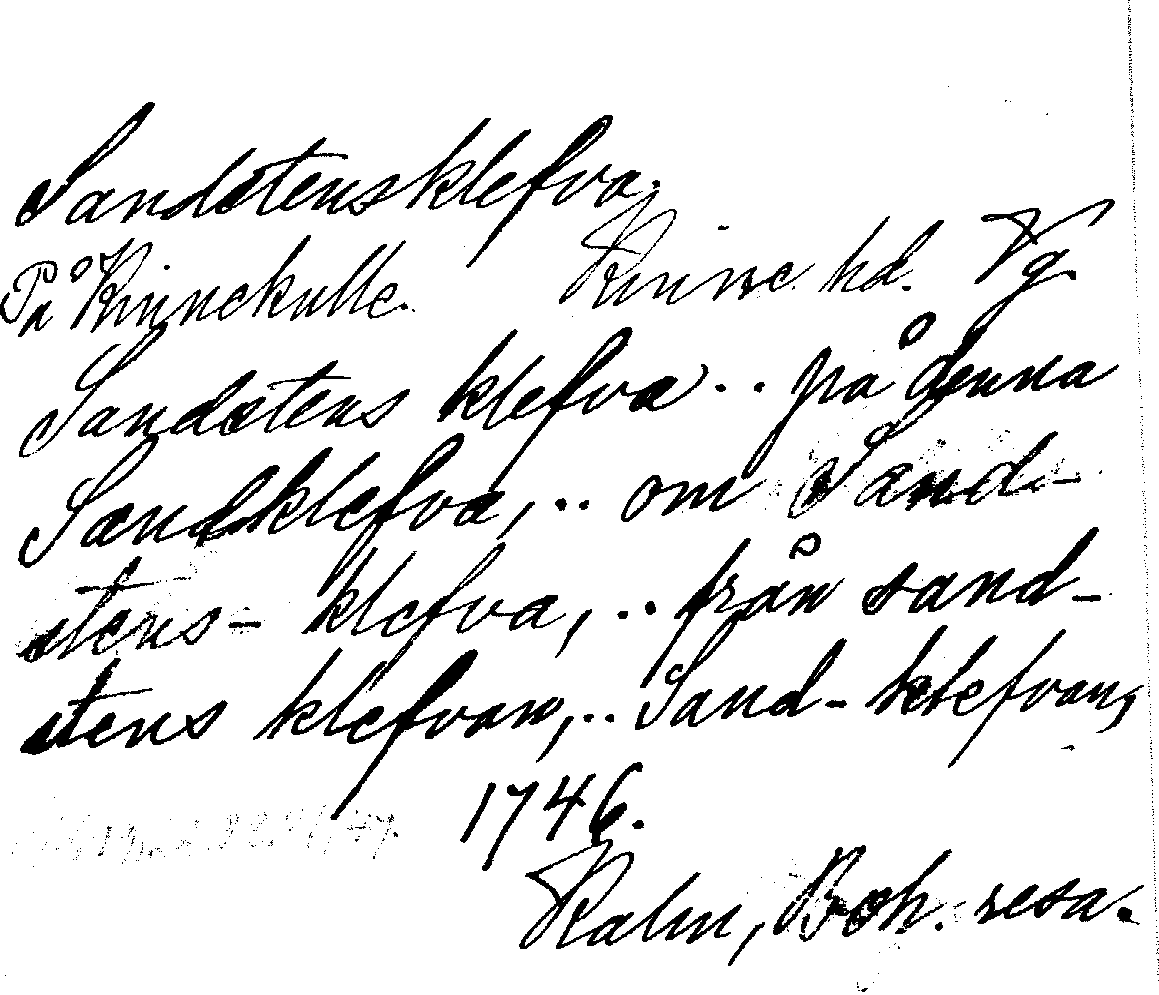 Sandstensklefva,
På Kinnekulle. Kinne hd. Vg
Sandstens klefva .. på denna
Sandklefva, .. om Sand-
stens- klefva, .. från sand-
stens klefvan, .. Sand- klefvan,
1746.
Kalm, Boh. resa.